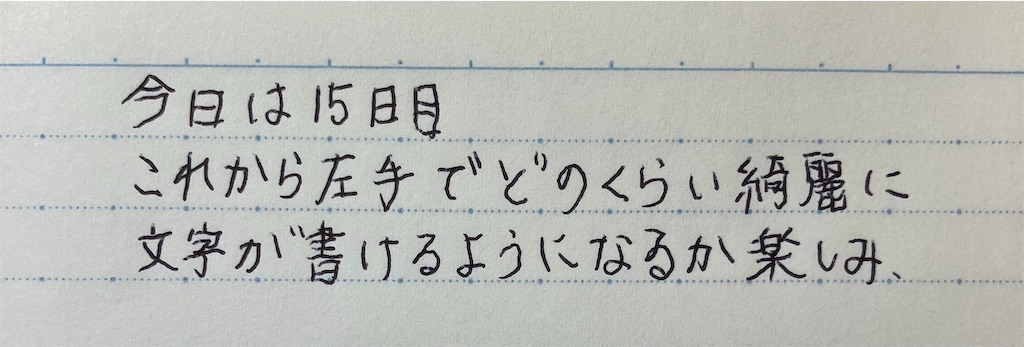 今日は15日目
これから左手でどのくらい綺麗に
文字が書けるようになるか楽しみ、